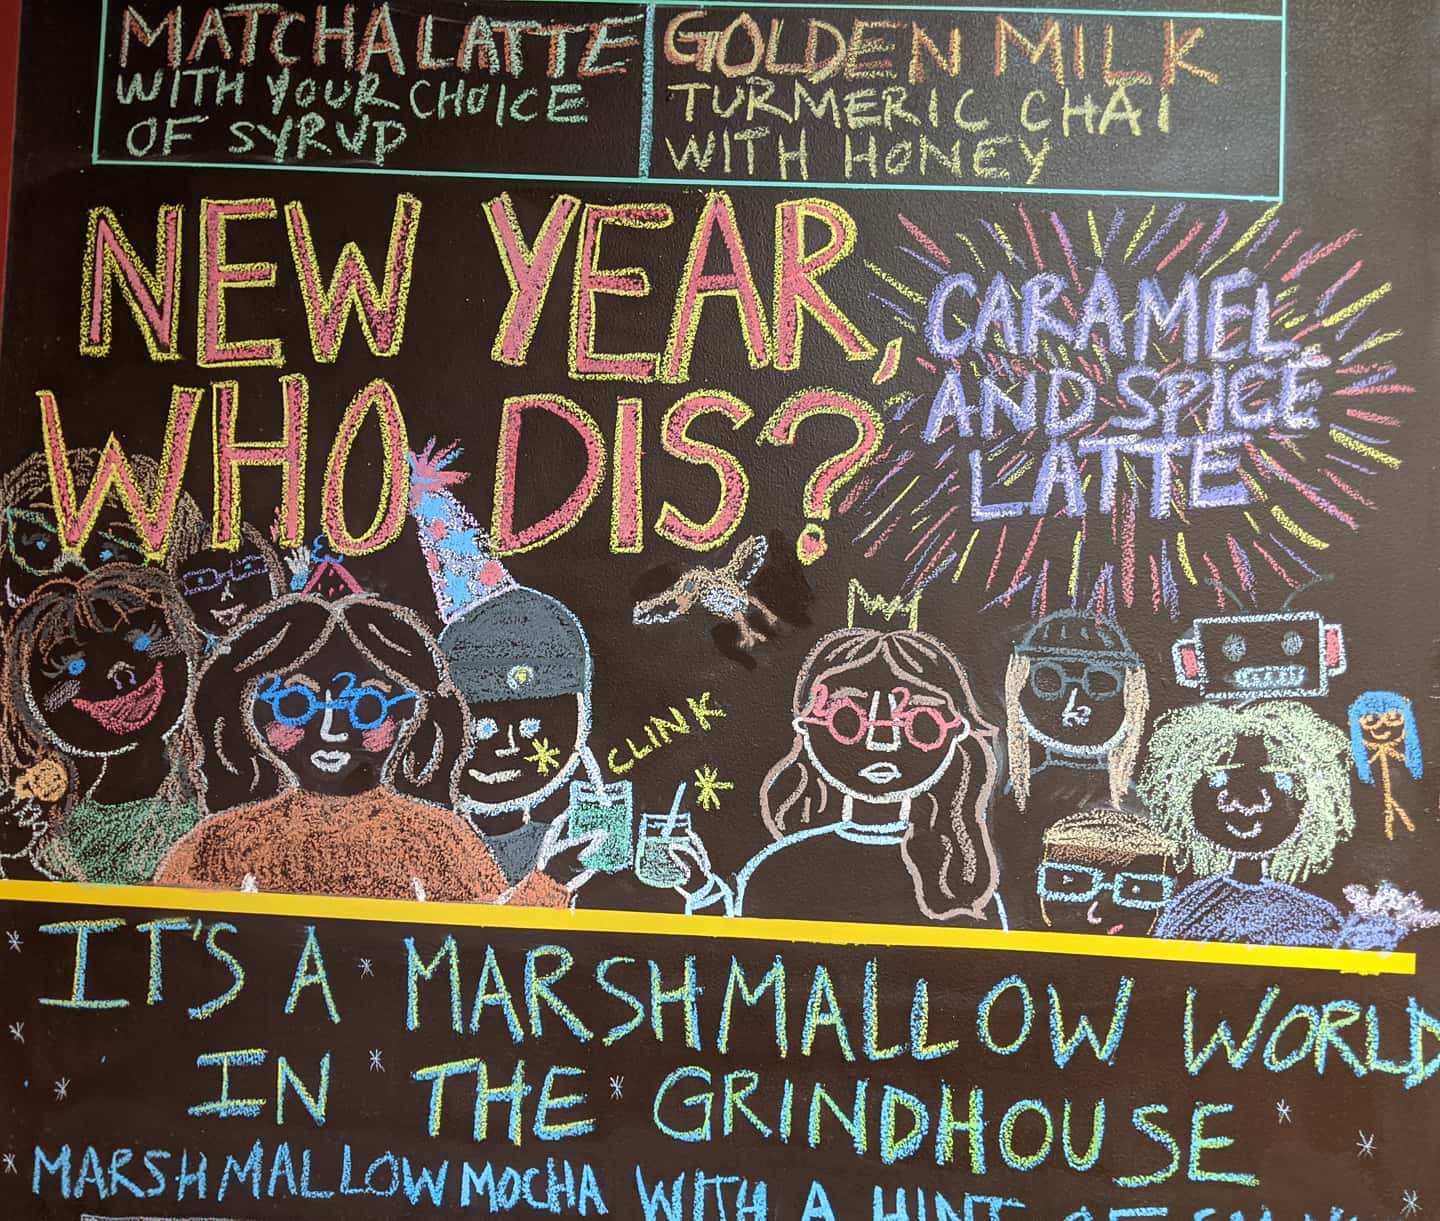 MATCHA LATTE
WITH YOUR CHOICE
OF SYRUP
GOLDEN MILK
TURMERIC CHAI
WITH HONEY
NEW YEAR,
WHO DIS?
CARAMEL
AND SPICE
LATTE
2020
CLINK
2020
IT'S A MARSHMALLOW WORLD
IN THE GRINDHOUSE
MARSHMALLOW MOCHA WITH A HINT OF